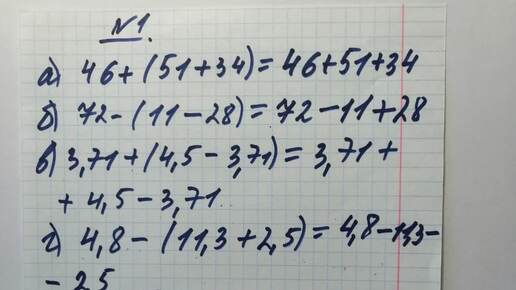 №1.
а) 46+(51+34)=46+51+34
б) 72-(11-28)=72-11+28
в) 3,71+(4,5-3,71)=3,71+
+4,5-3,71
г) 4,8-(11,3+2,5)=4,8-11,3-
-2,5